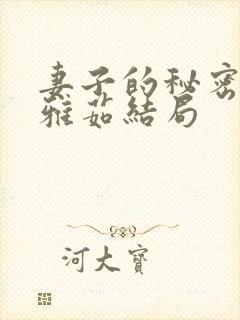 妻子的秘密
雅茹結局
河大寶